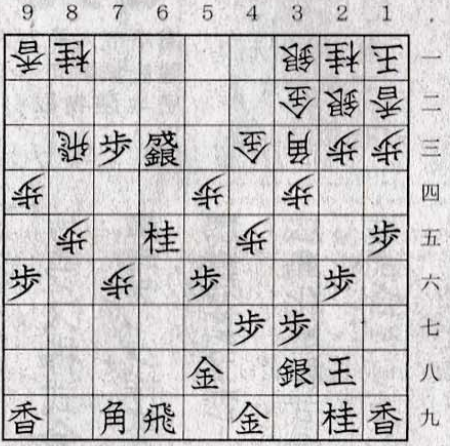 9 8 7 6 5 4 3 2 1
香 桂 銀 桂 王 一
金 銀 香 二
飛 歩 全 金 角 歩 歩 三
歩 歩 歩 四
歩 桂 歩 歩 五
歩 歩 歩 歩 六
歩 歩 七
金 銀 王 八
香 角 飛 金 桂 香 九